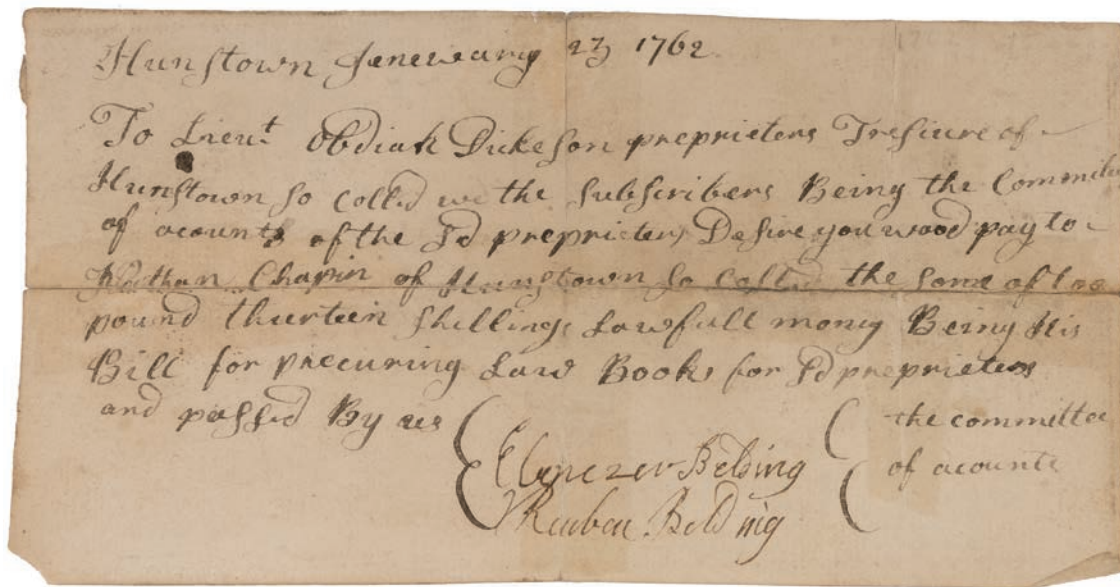 Hunstown Jenewary 23 1762
To Lieut Obdiah Dickeson preprieters Tresiure of
Hunstown so colled we the subscribers Being the Committee
of acounts of the sd preprieters Desire you wood pay to
Chapin of Hunstown so colled the some of too
pound thurteen shillings Lawfull money Being His
Bill for precuring Law Books for sd preprieters
and passed By us
Ebenezer Belding
Reuben Belding
the committee
of acounts